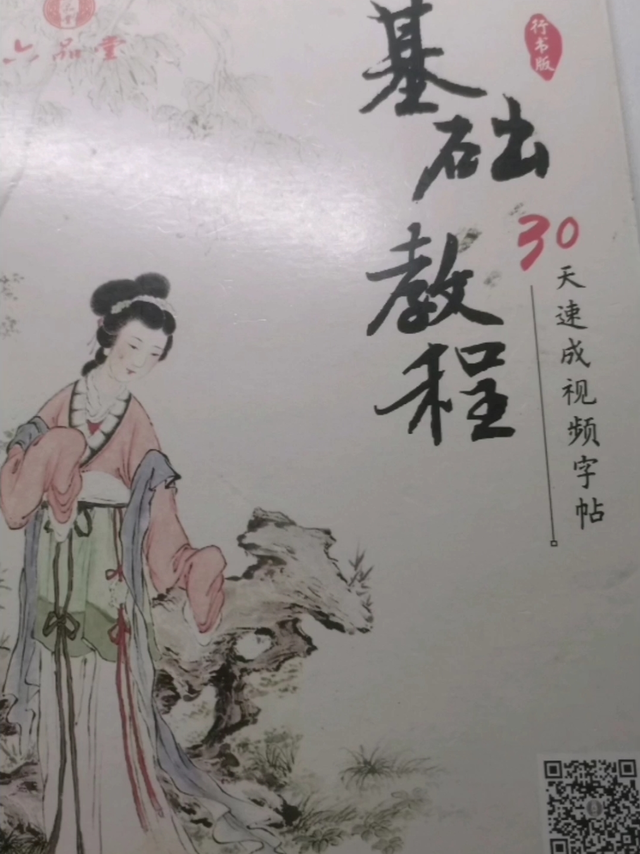 六品堂
行书版
基础教程
30天速成视频字帖